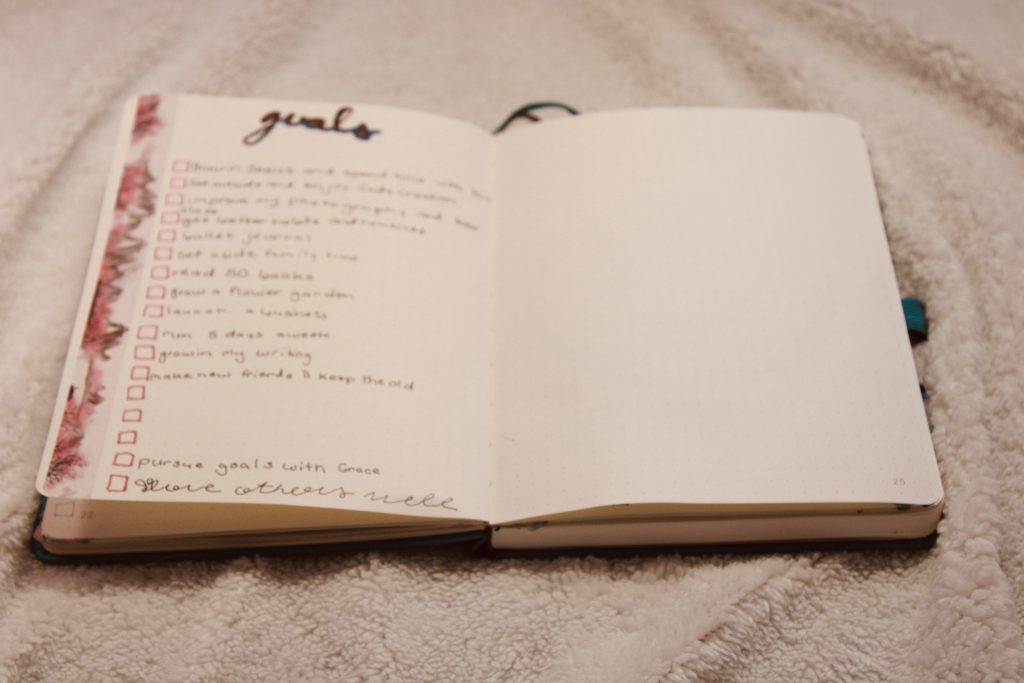 goals
grow in Jesus and spend time with
get outside and enjoy God's creation
improve my photography and
get better habits and routines
bullet journal
set aside family time
read 50 books
grow a flower garden
launch a business
run 5 days a week
grow in my writing
make new friends & keep the old
pursue goals with Grace
love others well
22
25